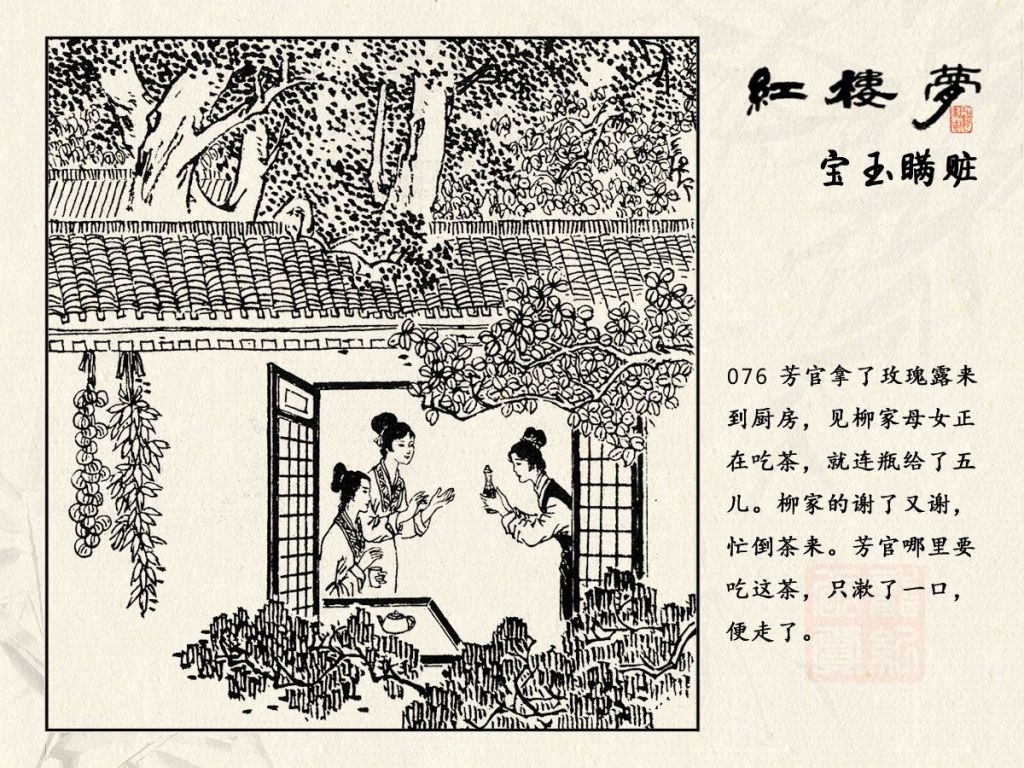 紅樓夢
宝玉瞒赃
076 芳官拿了玫瑰露来
到厨房，见柳家母女正
在吃茶，就连瓶给了五
儿。柳家的谢了又谢，
忙倒茶来。芳官哪里要
吃这茶，只漱了一口，
便走了。